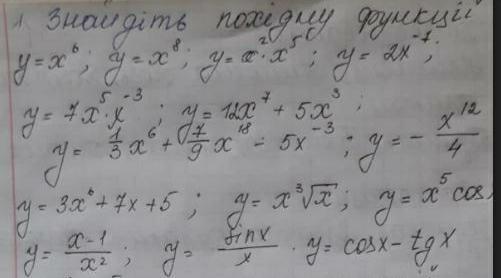 1. Знайдіть похідну функції
y = x⁶; y = x⁸; y = x² · x⁵; y = 2x⁻⁷;
y = 7x⁵ · x⁻³; y = 12x⁷ + 5x³;
y = 1/3 x⁶ + 7/9 x¹⁸ - 5x⁻³; y = - x¹²/4
y = 3x⁶ + 7x + 5; y = x³√x; y = x⁵ cos
y = x-1/x²; y = sinx/x · y = cosx - tgx